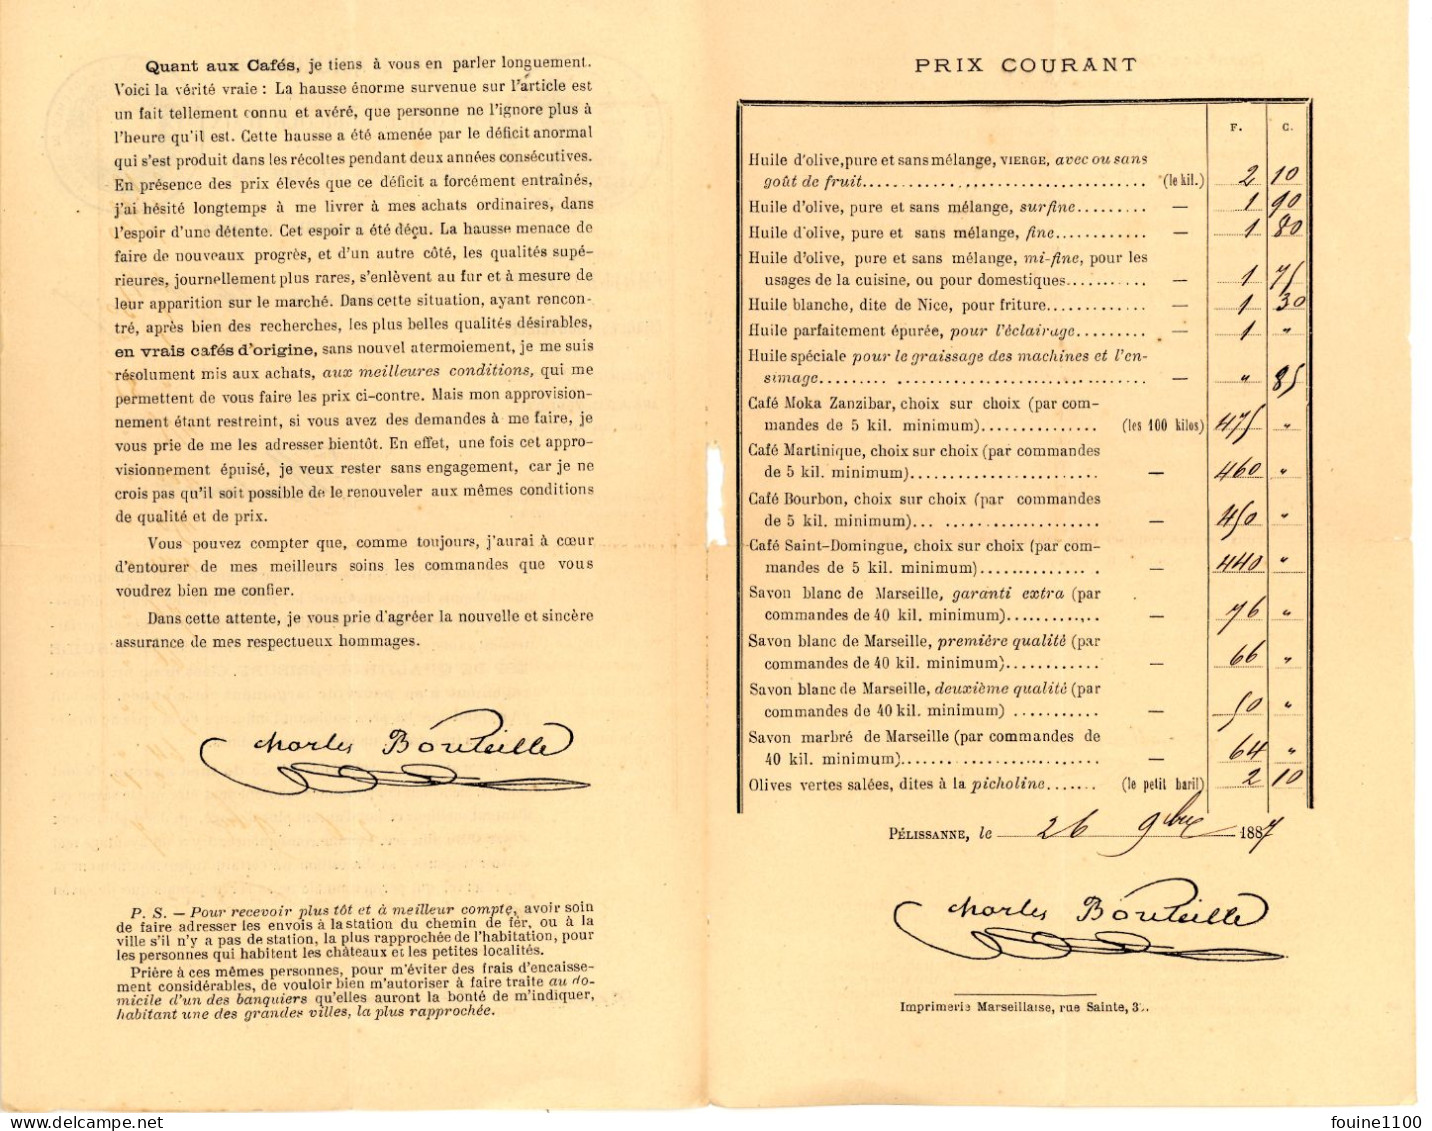 Quant aux Cafés, je tiens à vous en parler longuement.
Voici la vérité vraie : La hausse énorme survenue sur l'article est
un fait tellement connu et avéré, que personne ne l'ignore plus à
l'heure qu'il est. Cette hausse a été amenée par le déficit anormal
qui s'est produit dans les récoltes pendant deux années consécutives.
En présence des prix élevés que ce déficit a forcément entraînés,
j'ai hésité longtemps à me livrer à mes achats ordinaires, dans
l'espoir d'une détente. Cet espoir a été déçu. La hausse menace de
faire de nouveaux progrès, et d'un autre côté, les qualités supé-
rieures, journellement plus rares, s'enlèvent au fur et à mesure de
leur apparition sur le marché. Dans cette situation, ayant rencon-
tré, après bien des recherches, les plus belles qualités désirables,
en vrais cafés d'origine, sans nouvel atermoiement, je me suis
résolument mis aux achats, aux meilleures conditions, qui me
permettent de vous faire les prix ci-contre. Mais mon approvision-
nement étant restreint, si vous avez des demandes à me faire, je
vous prie de me les adresser bientôt. En effet, une fois cet appro-
visionnement épuisé, je veux rester sans engagement, car je ne
crois pas qu'il soit possible de le renouveler aux mêmes conditions
de qualité et de prix.
Vous pouvez compter que, comme toujours, j'aurai à cœur
d'entourer de mes meilleurs soins les commandes que vous
voudrez bien me confier.
Dans cette attente, je vous prie d'agréer la nouvelle et sincère
assurance de mes respectueux hommages.
Charles Bouteille
P. S. — Pour recevoir plus tôt et à meilleur compte, avoir soin
de faire adresser les envois à la station du chemin de fer, ou à la
ville s'il n'y a pas de station, la plus rapprochée de l'habitation, pour
les personnes qui habitent les châteaux et les petites localités.
Prière à ces mêmes personnes, pour m'éviter des frais d'encaisse-
ment considérables, de vouloir bien m'autoriser à faire traite au do-
micile d'un des banquiers qu'elles auront la bonté de m'indiquer,
habitant une des grandes villes, la plus rapprochée.
PRIX COURANT
F. C.
Huile d'olive, pure et sans mélange, VIERGE, avec ou sans
goût de fruit.................... (le kil.) 2 10
Huile d'olive, pure et sans mélange, surfine......... — 1 90
Huile d'olive, pure et sans mélange, fine............ — 1 80
Huile d'olive, pure et sans mélange, mi-fine, pour les
usages de la cuisine, ou pour domestiques........... — 1 75
Huile blanche, dite de Nice, pour friture............. — 1 30
Huile parfaitement épurée, pour l'éclairage.......... — 1 "
Huile spéciale pour le graissage des machines et l'en-
simage.................... — " 85
Café Moka Zanzibar, choix sur choix (par com-
mandes de 5 kil. minimum)............... (les 100 kilos) 475 "
Café Martinique, choix sur choix (par commandes
de 5 kil. minimum)........................ — 460 "
Café Bourbon, choix sur choix (par commandes
de 5 kil. minimum)... .................... — 450 "
Café Saint-Domingue, choix sur choix (par com-
mandes de 5 kil. minimum)............. . — 440 "
Savon blanc de Marseille, garanti extra (par
commandes de 40 kil. minimum)............ — 76 "
Savon blanc de Marseille, première qualité (par
commandes de 40 kil. minimum)............ — 66 "
Savon blanc de Marseille, deuxième qualité (par
commandes de 40 kil. minimum) ........... — 50 "
Savon marbré de Marseille (par commandes de
40 kil. minimum)......................... — 64 "
Olives vertes salées, dites à la picholine....... (le petit baril) 2 10
PÉLISSANNE, le 26 9bre 1887
Charles Bouteille
Imprimerie Marseillaise, rue Sainte,
delcampe.net
fouine1100